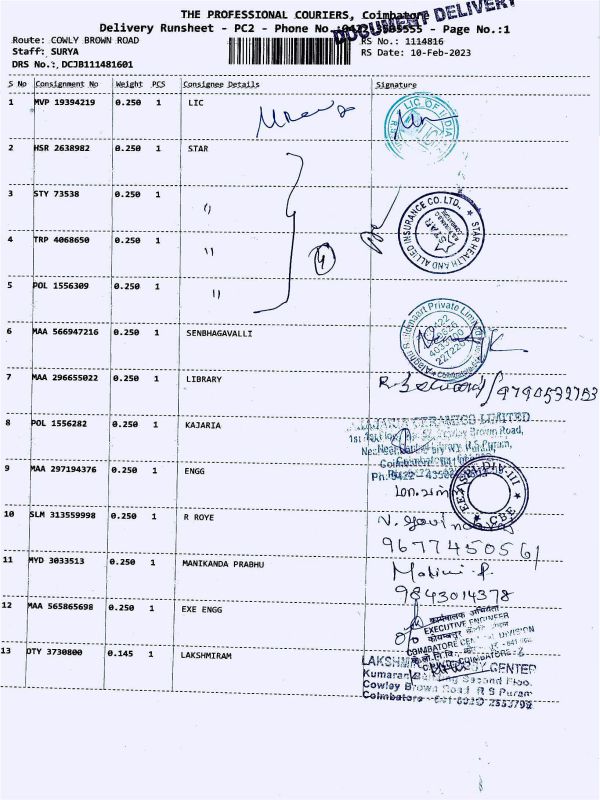 THE PROFESSIONAL COURIERS, Coimbatore
DOCUMENT DELIVERY
Delivery Runsheet - PC2 - Phone No.: - Page No.:1
Route: COWLY BROWN ROAD
RS No.: 1114816
Staff: SURYA
RS Date: 10-Feb-2023
DRS No.: DCJB111481601
S No Consignment No Weight PCS Consignee Details Signature
1 MVP 19394219 0.250 1 LIC
LIC OF INDIA
2 HSR 2638982 0.250 1 STAR
3 STY 73538 0.250 1 "
STAR HEALTH AND ALLIED INSURANCE CO. LTD.,
STAR
4 TRP 4068650 0.250 1 "
4
5 POL 1556309 0.250 1 "
6 MAA 566947216 0.250 1 SENBHAGAVALLI
Private Limited
7 MAA 296655022 0.250 1 LIBRARY
9790532753
8 POL 1556282 0.250 1 KAJARIA
KAJARIA CERAMICS LIMITED
Cowley Brown Road,
R.S Puram,
Ph: 0422
9 MAA 297194376 0.250 1 ENGG
DIV-III
CBE
10 SLM 313559998 0.250 1 R ROYE
N. Govindaraj
9677450561
11 MYD 3033513 0.250 1 MANIKANDA PRABHU
9843014378
12 MAA 565865698 0.250 1 EXE ENGG
कार्यपालक अभियंता
EXECUTIVE ENGINEER
COIMBATORE CENTRAL DIVISION
13 OTY 3730800 0.145 1 LAKSHMIRAM
CENTER
Kumaran Second Floor
Cowley Brown Road R S Puram
Coimbatore